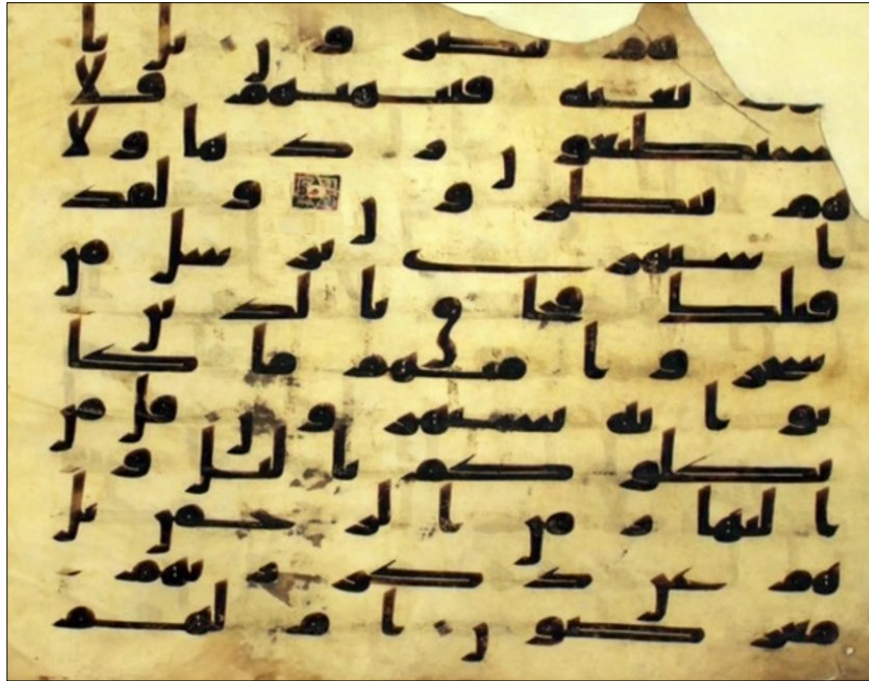 هم ينصرون بل تا
بغتة فتبهتهم فلا
يستطيعون ردها ولا
هم ينظرون ولقد
استهزى برسل من
قبلك فحاق بالذين
سخروا منهم ما كا
نوا به يستهزون قل من
يكلوكم باليل و
النهار من الرحمن بل
هم عن ذكر ربهم
معرضون ام لهم